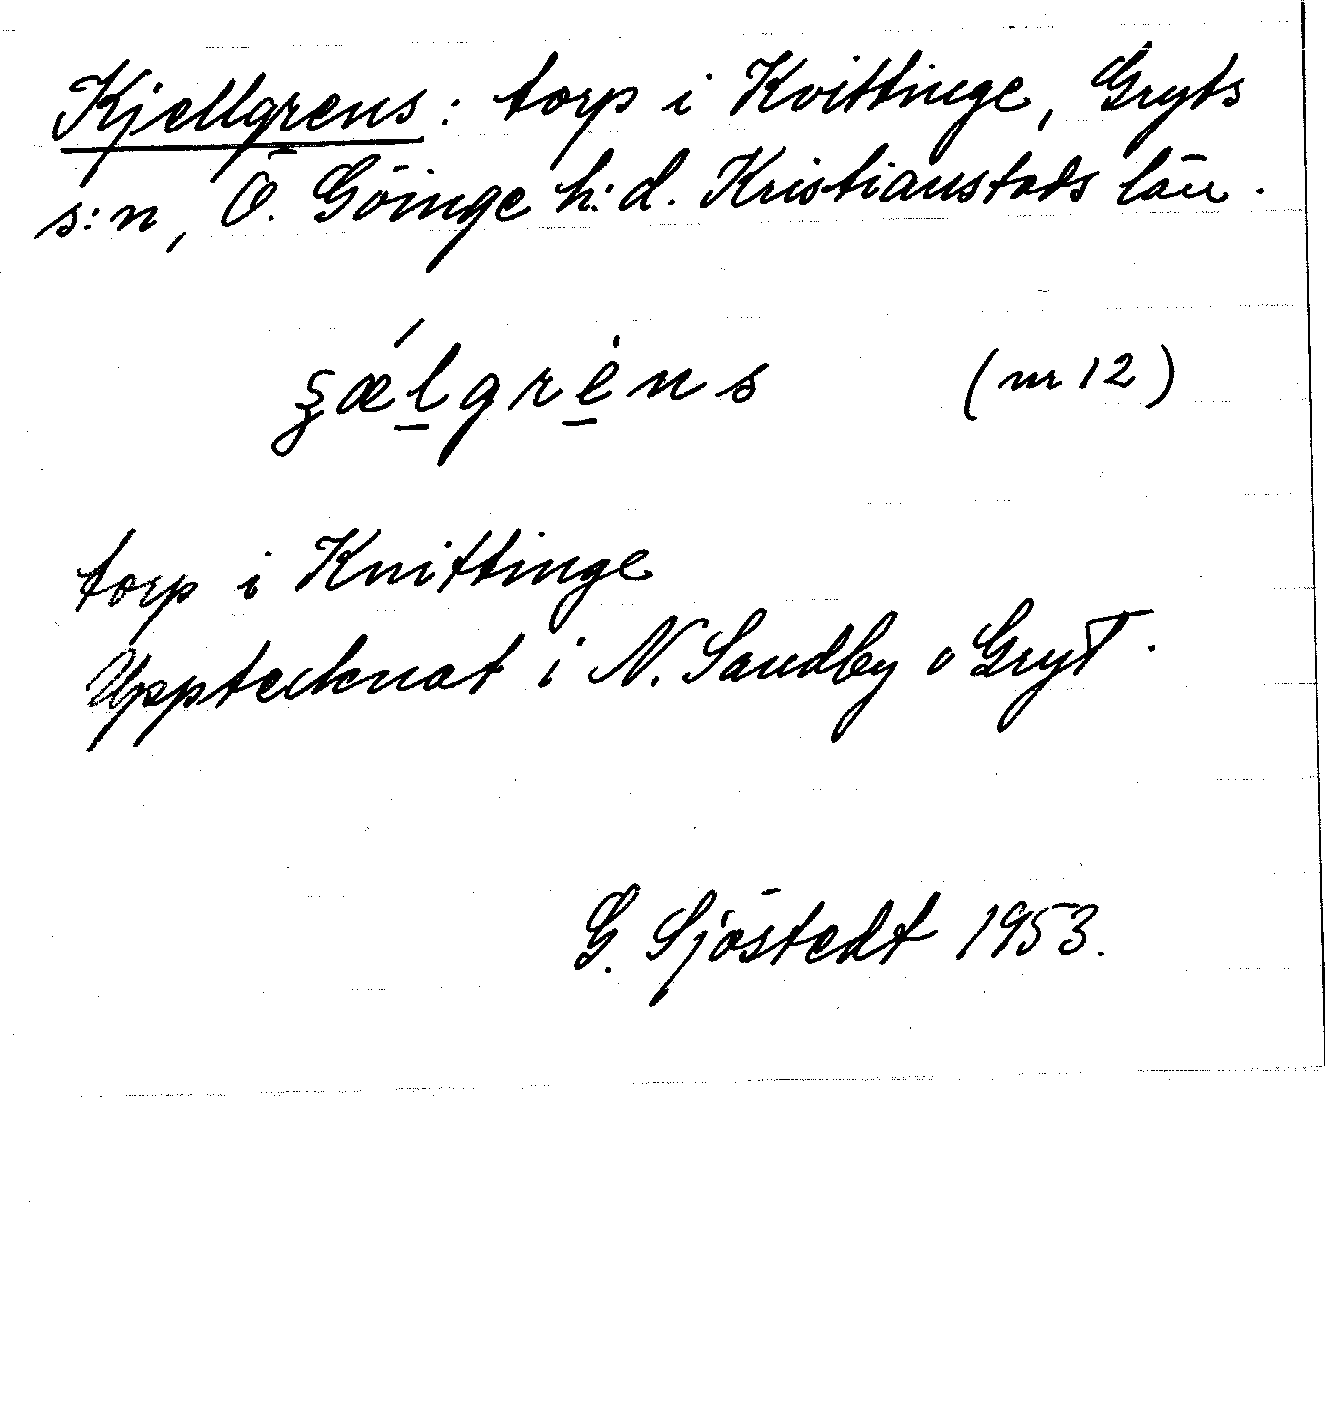 Kjellgrens: torp i Kvittinge, Gryts
s:n, Ö. Göinge h:d. Kristianstads län.
ʂǽlgrėns (nr 12)
torp i Knittinge
Upptecknat i N. Sandby o Gryt.
G. Sjöstedt 1953.